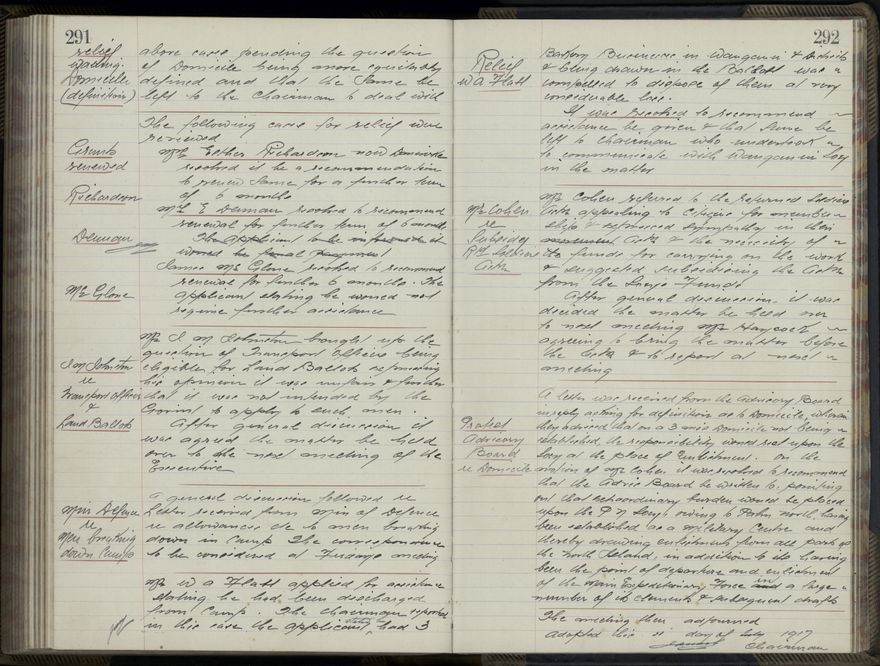 291
relief
awaiting
Domicile
(definition)
above case pending the question
of Domicile being more equitably
defined and that the same be
left to the Chairman to deal with
The following cases for relief were
reviewed
Grants
renewed
Richardson
Mrs Esther Richardson now Domicile
resolved it be a recommendation
to renew same for a further term
of 6 months
Denman
Mrs E Denman resolved to recommend
renewal for further term of 6 months
The applicant to be informed it
would be final
Mc Glone
James Mc Glone resolved to recommend
renewal for further 6 months. The
applicant stating he would not
require further assistance
J M Johnston
re
Transport Officers
&
Land Ballots
Mr J M Johnston brought up the
question of Transport Officers being
eligible for Land Ballots expressing
his opinion it was unfair & further
that it was not intended by the
Govmt to apply to such men.
After general discussion it
was agreed the matter be held
over to the next meeting of the
Executive
Min Defence
re
Men breaking
down Camp
A general discussion followed re
Letter received from Min of Defence
re allowances etc to men breaking
down in Camp The correspondence
to be considered at Tuesdays meeting
Mr W A Flatt applied for assistance
stating he had been discharged
from Camp. The Chairman reported
in this case the applicant had 3
292
Relief
W A Flatt
Businesses in Wanganui & District
& being drawn in the Ballott was
compelled to dispose of them at very
considerable loss.
It was resolved to recommend
assistance be given & that same be
left to Chairman who undertook
to communicate with Wanganui Soy
in the matter
Mr Cohen
re
Subsidy
Rtd Soldiers
Assn
Mr Cohen referred to the Returned Soldiers
Assn appealing to Citizens for member
ship & expressed sympathy in their
Assn & the necessity of
the funds for carrying on the work
& suggested subsidising the Assn
from the Socys Funds
After general discussion it was
decided the matter be held over
to next meeting Mr Haycock
agreeing to bring the matter before
the Assn & to report at next
meeting
Protest
Advisory
Board
re Domicile
A letter was received from the Advisory Board
in reply asking for definition as to Domicile, wherein
they advised that on a 3 mos Domicile not being
established, the responsibility would rest upon the
Socy at the place of Enlistment. On the
motion of Mr Cohen it was resolved to recommend
that the Advis Board be written to, pointing
out that extraordinary burden would be placed
upon the P N Socys owing to Palm North having
been established as a Military Centre and
thereby drawing enlistments from all parts of
the North Island, in addition to its having
been the point of departure and enlistment
of the Main Expeditionary Force in a large
number of its elements & subsequent drafts
The meeting then adjourned
Adopted this 11 day of July 1917
Chairman